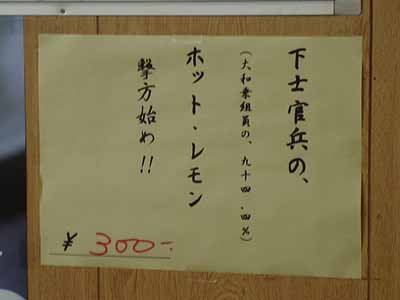 下士官兵の、
(大和乗組員の、九十四.四%)
ホット・レモン
撃方始め!!
¥ 300-